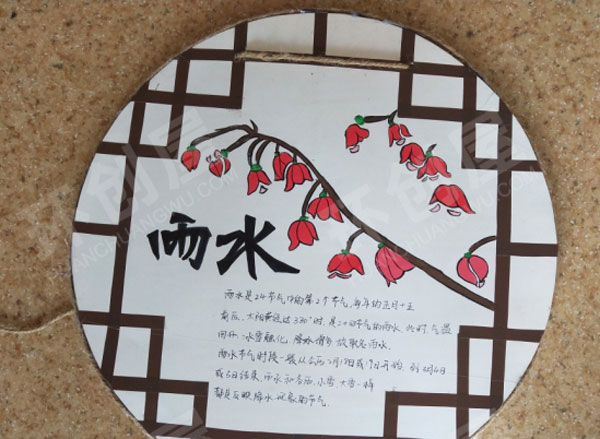 雨水
雨水是24节气中的第2个节气,每年的正月十五
前后,太阳黄经达330°时,是二十四节气的雨水,此时,气温
回升、冰雪融化、降水增多,故取名雨水。
雨水节气时段一般从公历2月18日或19日开始,到3月4日
或5日结束,雨水和谷雨、小雪、大雪一样
都是反映降水现象的节气
环创屋
HUANCHUANGWU.COM